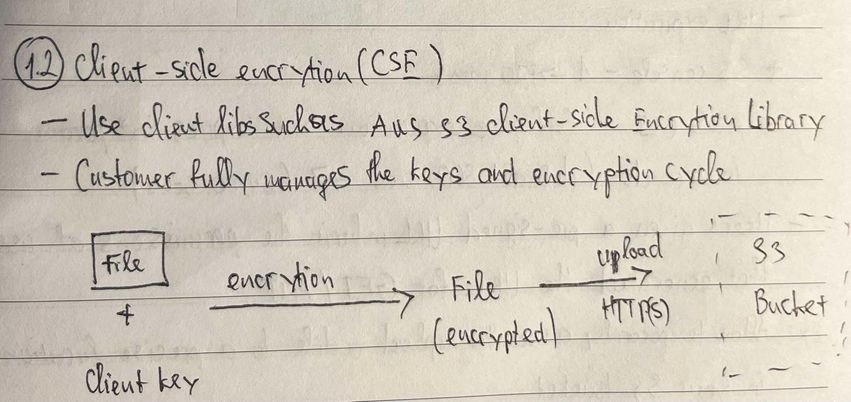 1.2 Client-side encrytion (CSE)
- Use client libs such as AWS S3 client-side Encrytion Library
- Customer fully manages the keys and encryption cycle
File
+
Client key
encrytion
File
(encrypted)
upload
HTTP(S)
S3
Bucket